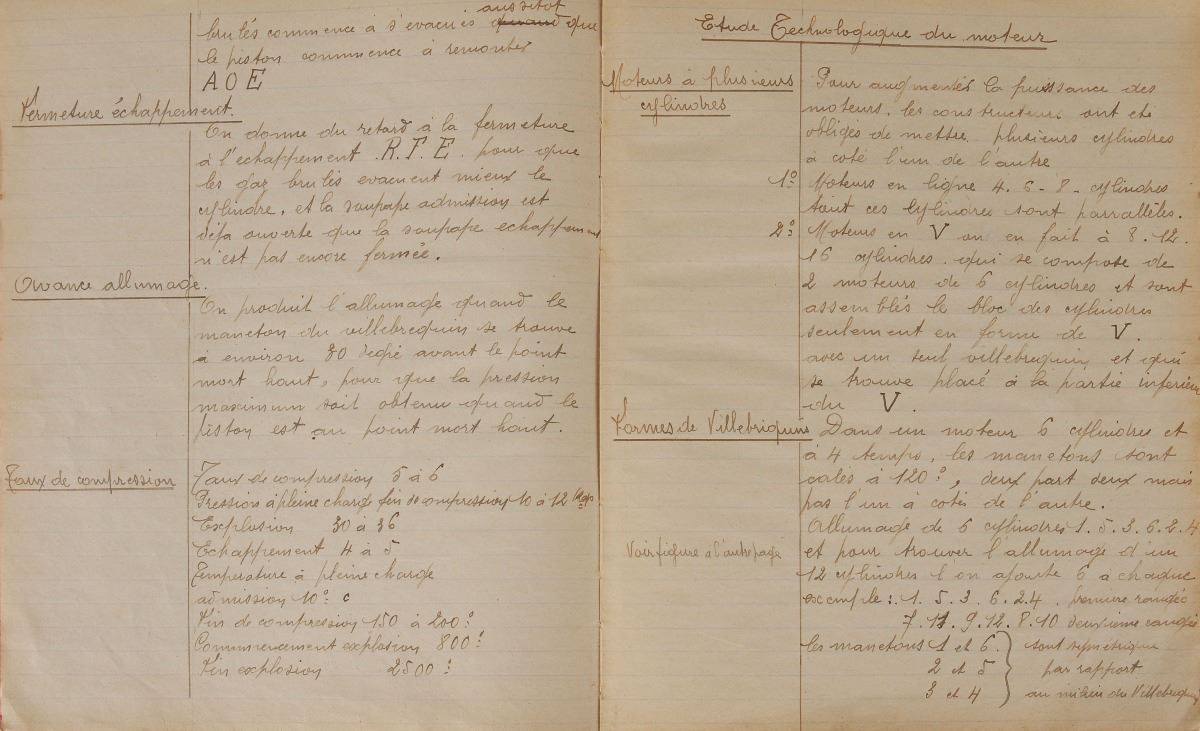 aussitot
brulés commence à s'evacués quand que
le piston commence à remonter
AOE
Fermeture échappement.
On donne du retard à la fermeture
à l'echappement .R.F.E. pour que
les gaz brulés evacuent mieux le
cylindre, et la soupape admission est
déja ouverte que la soupape echappement
n'est pas encore fermée.
Avance allumage.
On produit l'allumage quand le
maneton du villebrequin se trouve
à environ 30 degré avant le point
mort haut, pour que la pression
maximum soit obtenu quand le
piston est au point mort haut.
Taux de compression
Taux de compression 5 à 6
Pression à pleine charge fin de compression 10 à 12 Kgs
Explosion 30 à 36
Echappement 4 à 5
Température à pleine charge
admission 10° c
Fin de compression 150 à 200°
Commencement explosion 800°
Fin explosion 2500°
Etude Technologique du moteur
Moteurs à plusieurs
cylindres
Pour augmentés la puissance des
moteurs, les constructeurs ont été
obligés de mettre plusieurs cylindres
à coté l'un de l'autre
1° Moteurs en ligne 4. 6 - 8 - cylindres
tout ces cylindres sont parralléles.
2° Moteurs en V on en fait à 8. 12.
16 cylindres. qui se compose de
2 moteurs de 6 cylindres et sont
assemblés le bloc des cylindres
seulement en forme de V.
avec un seul villebrequin et qui
se trouve placé à la partie inferieur
du V.
Formes de Villebrequins
Dans un moteur 6 cylindres et
à 4 temps, les manetons sont
calés à 120°, deux part deux mais
pas l'un à cotés de l'autre.
Allumage de 6 cylindres 1. 5. 3. 6. 2. 4
Voir figure à l'autre page
et pour trouver l'allumage d'un
12 cylindres l'on ajoute 6 à chaque
exemple:. 1. 5. 3. 6. 2. 4. premiere rangée
7. 11. 9. 12. 8. 10 deuxieme rangée
les manetons 1 et 6. sont symétrique
2 et 5 par rapport
3 et 4 au milieu du Villebrequin